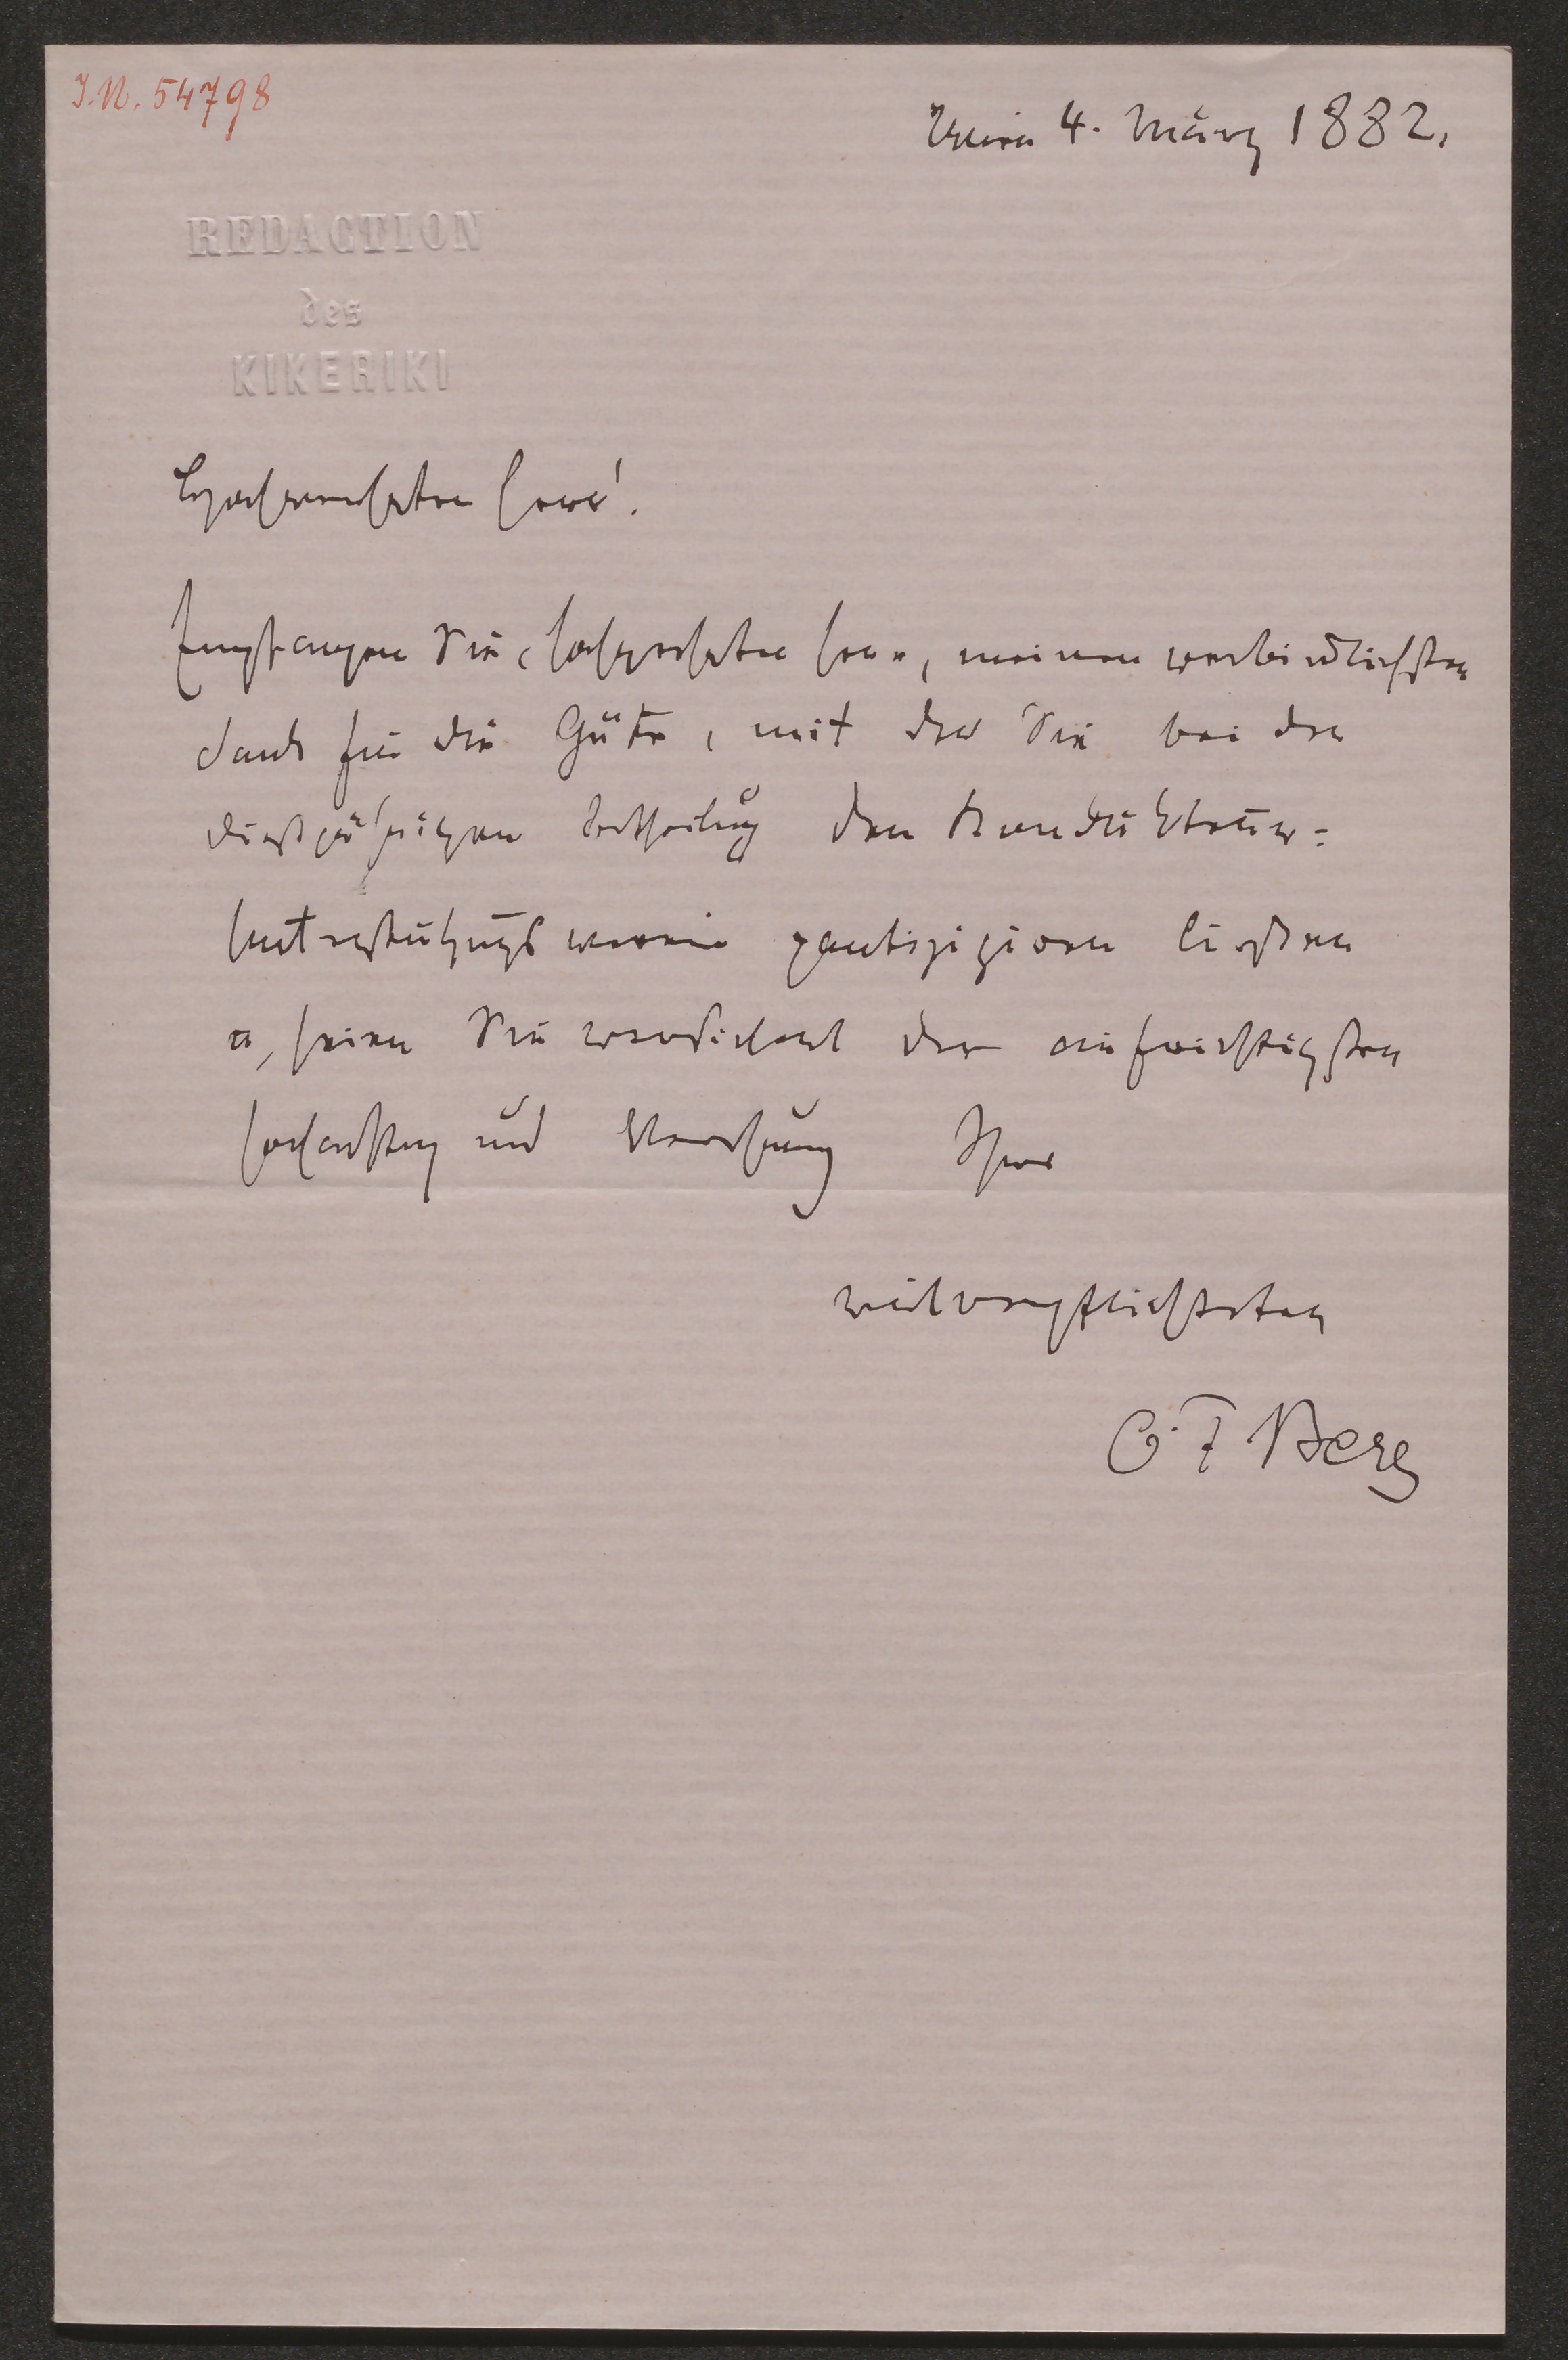 I.N. 54798
Wien 4. März 1882.
REDACTION
des
KIKERIKI
Hochverehrter Herr!
Empfangen Sie, hochgeehrter Herr, meinen verbindlichsten
Dank für die Güte, mit der Sie bei der
dießjährigen Vertheilung den Kondukteur-
Unterstützungsverein partizipiren ließen
u, seien Sie versichert der aufrichtigsten
Hochachtung und Verehrung Ihres
vielverpflichteten
O. F Berg